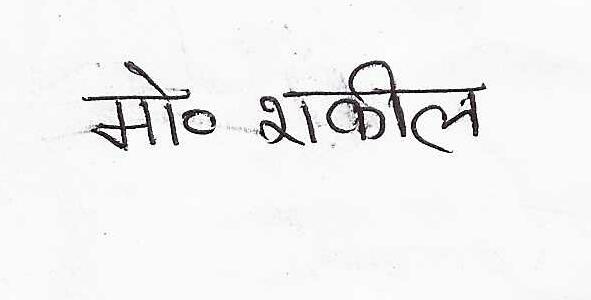 मो० शकील